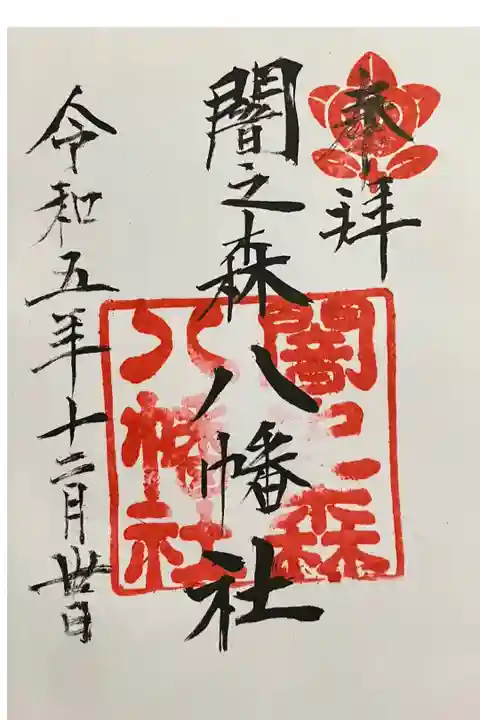 奉拝
闇之森八幡社
闇之森
八幡社
令和五年十二月卅日